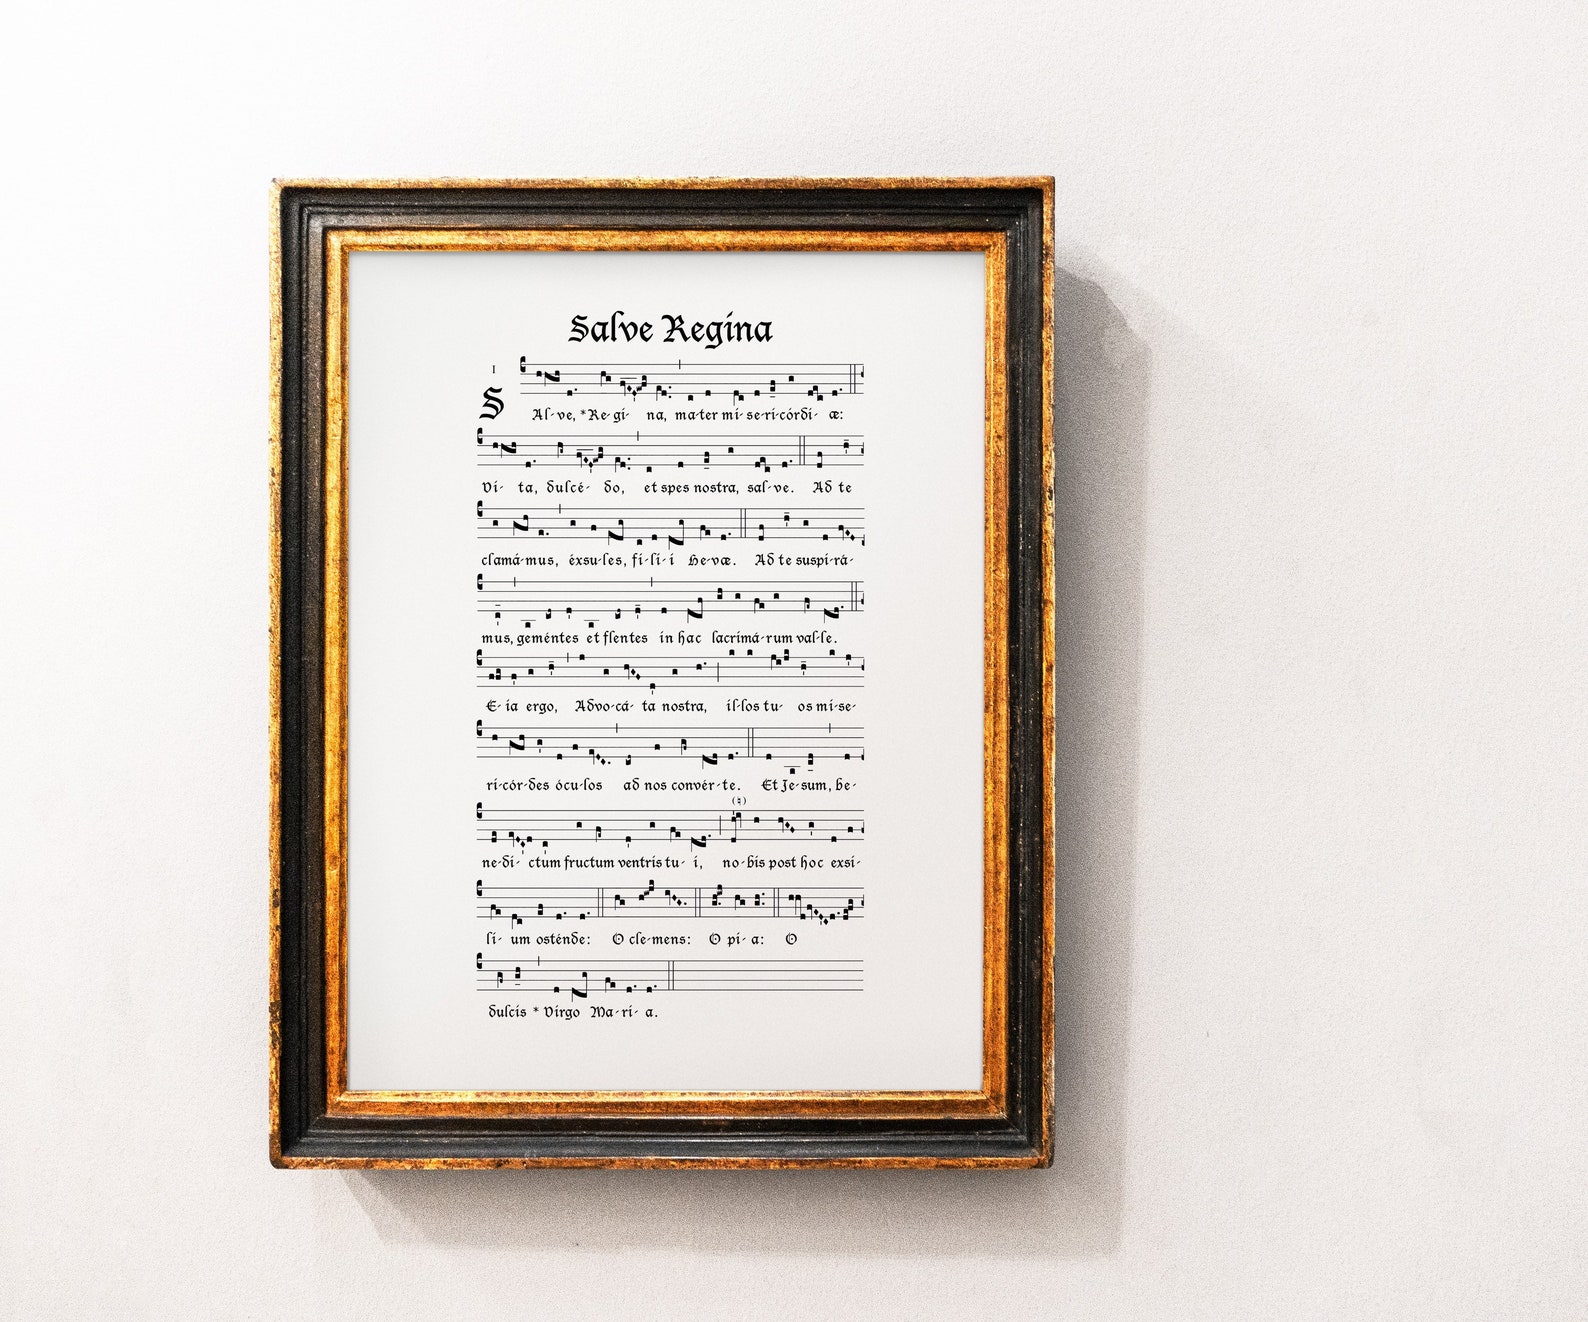 Salve Regina
I
SAl-ve, *Re-gi- na, mater mi-se-ri-córdi- æ:
Vi- ta, dulcé- do, et spes nostra, sal-ve. Ad te
clamá-mus, éxsu-les, fi-li-i Hevæ. Ad te suspi-rá-
mus, geméntes et flentes in hac lacrimá-rum val-le.
E-ia ergo, Advo-cá- ta nostra, il-los tu- os mi-se-
ri-cór-des ócu-los ad nos convér-te. Et Je-sum, be-
(♮)
ne-di- ctum fructum ventris tu- i, no-bis post hoc exsi-
li- um osténde: O cle-mens: O pi- a: O
dulcis * Virgo Ma-ri- a.